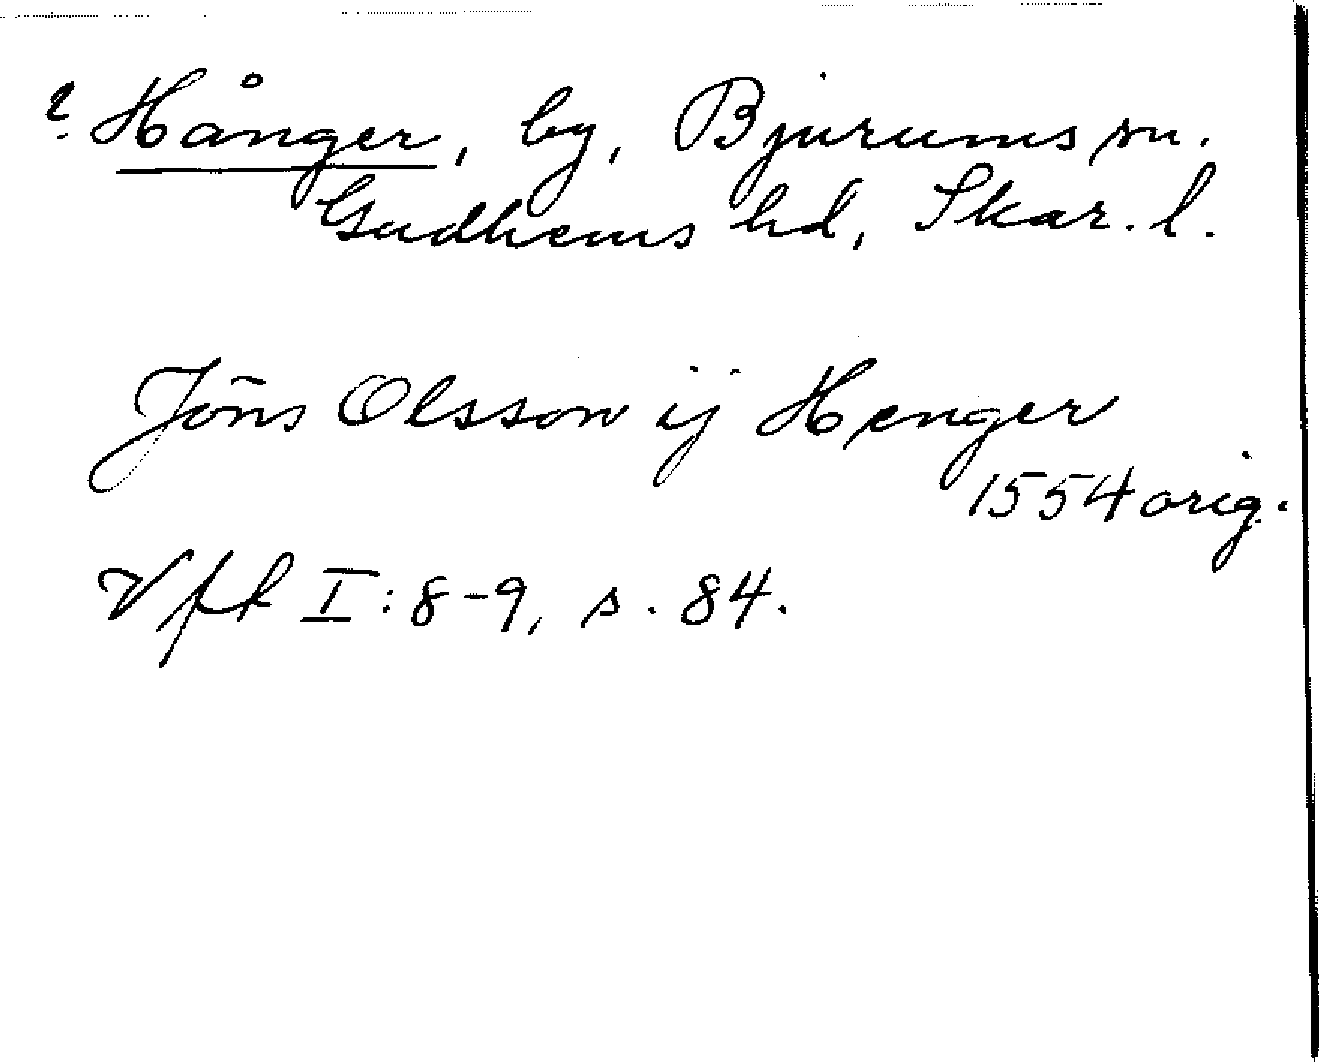 ? Hånger, by, Bjurums sn.
Gudhems hd, Skar. l.
Jöns Olsson ij Henger
1554 orig.
Vfk I:8-9, s. 84.